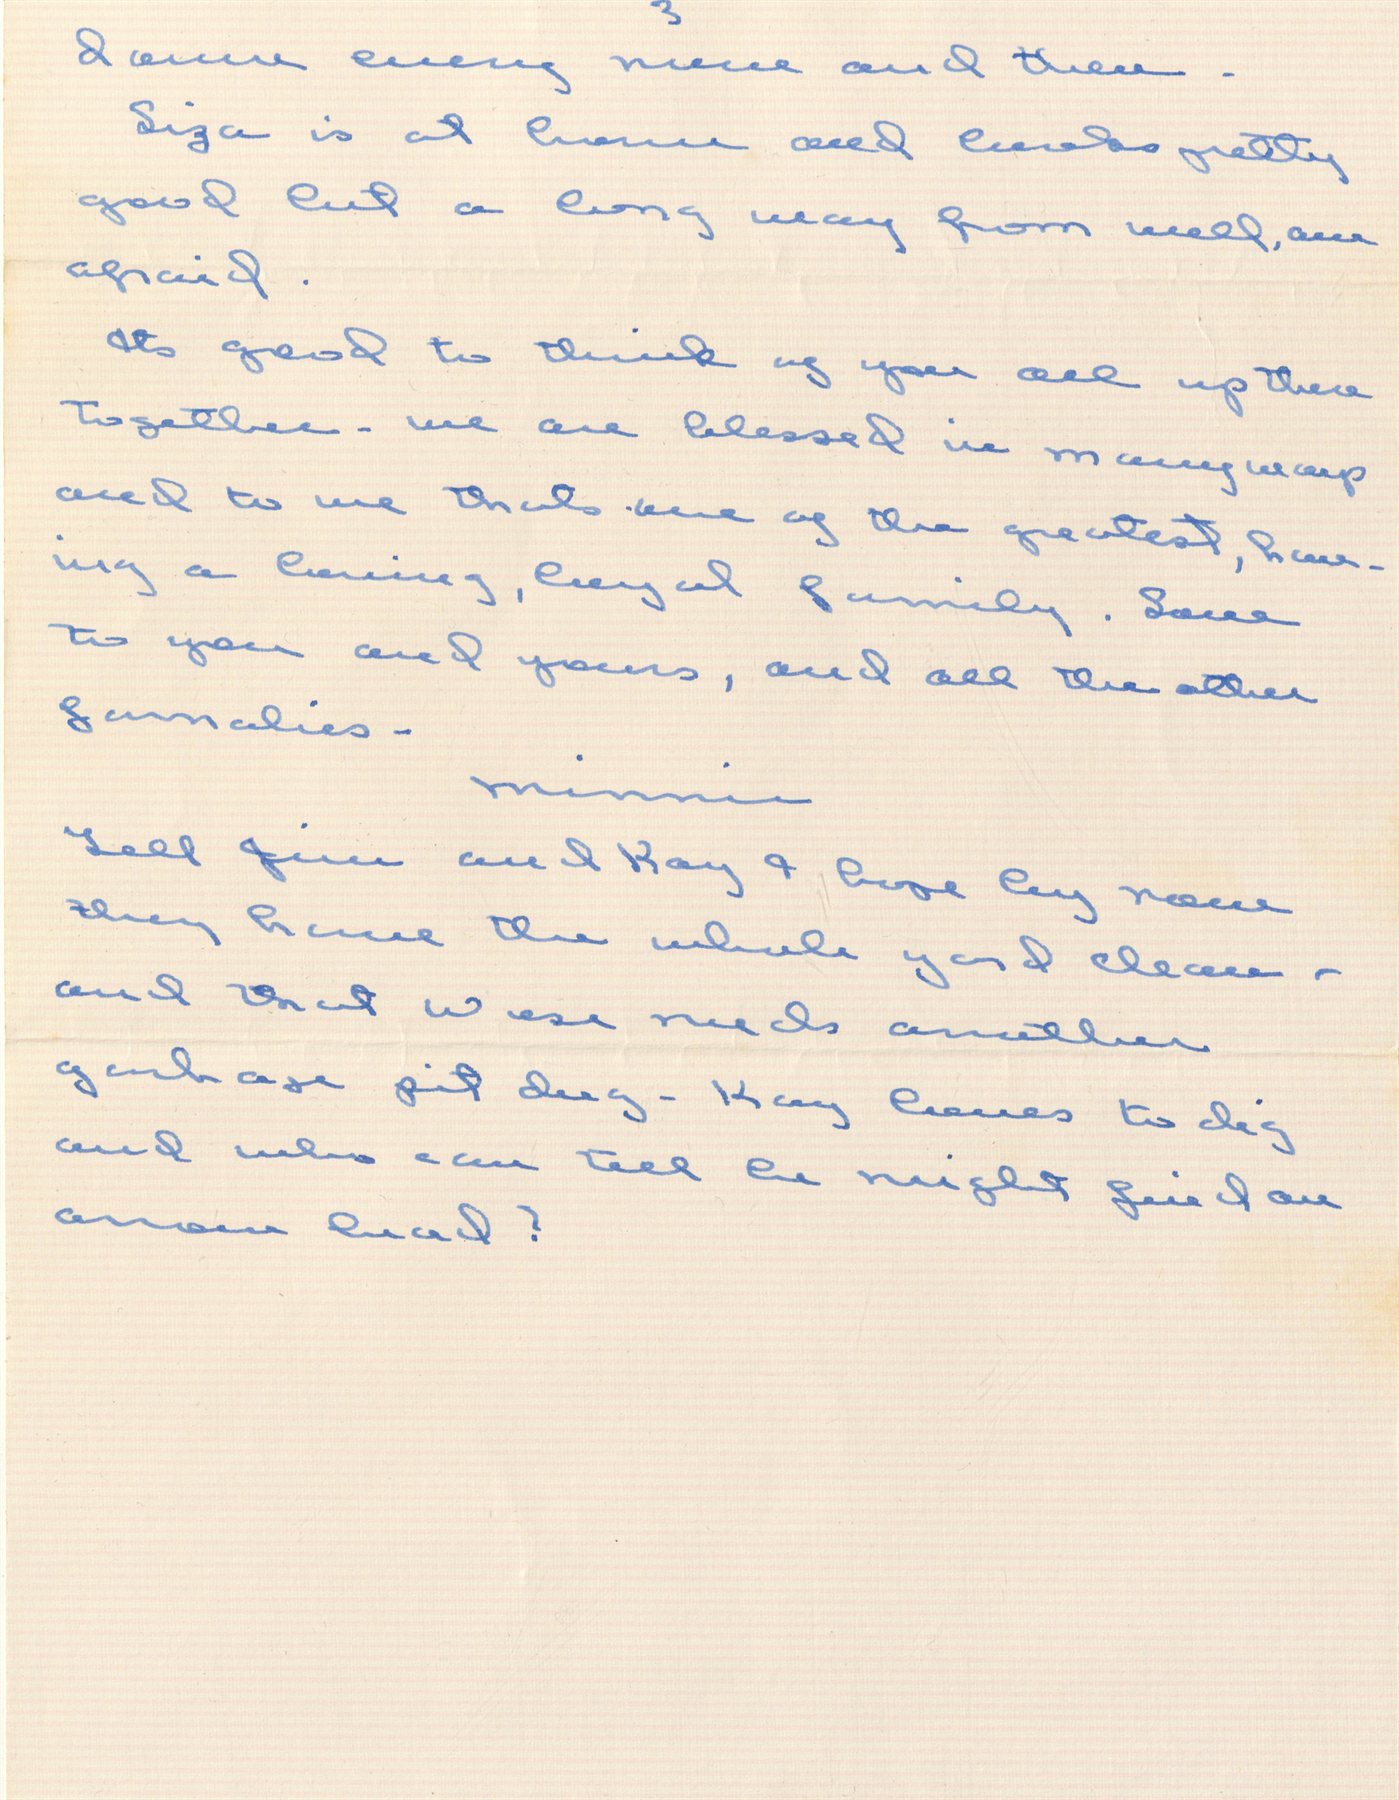 3
down every now and then -
Liza is at home and looks pretty
good but a long way from well, am
afraid.
Its good to think of you all up there
together - we are blessed in many ways
and to me thats one of the greatest, hav-
ing a loving, loyal family. Love
to you and yours, and all the other
familes -
Minnie
Tell Jim and Kay I hope by now
they have the whole yard clean -
and that needs another
garbage pit dug - Kay loves to dig
and who can tell he might find an
arrow head?